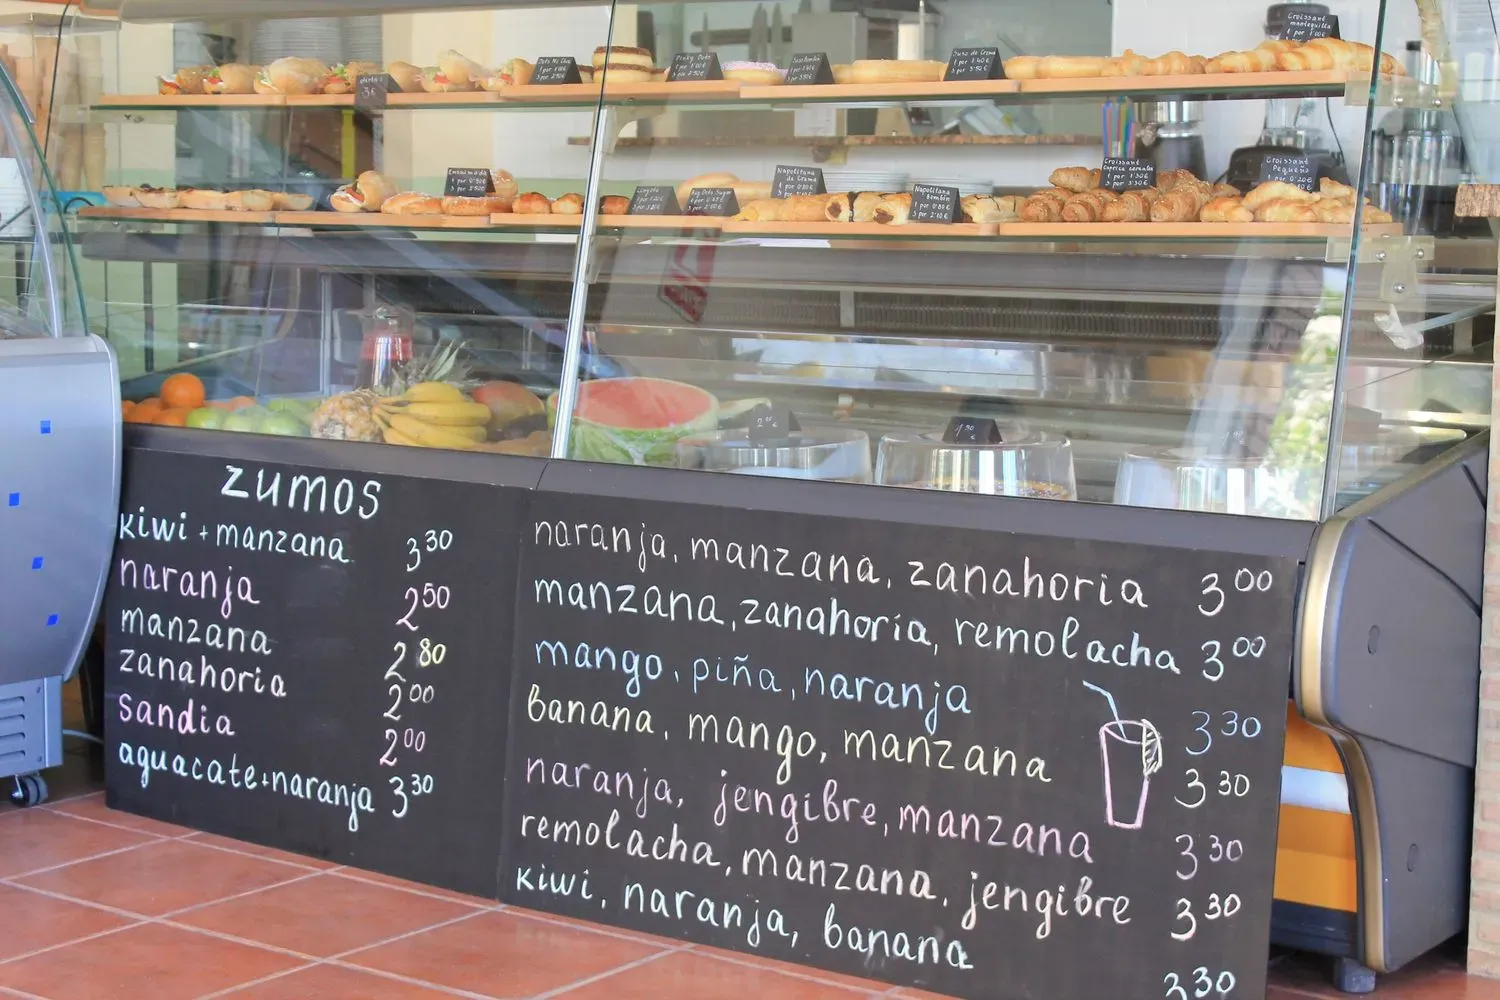 Croissant
mantequilla
Suso de Crema
Pinky Dots
Napolitana
de Crema
Napolitana
Bombón
Croissant
Croissant
Pequeño
ZUMOS
kiwi + manzana 3 30
naranja 2 50
manzana 2 80
zanahoria 2 00
sandia 2 00
aguacate+naranja 3 30
naranja, manzana, zanahoria 3 00
manzana, zanahoria, remolacha 3 00
mango, piña, naranja 3 30
banana, mango, manzana 3 30
naranja, jengibre, manzana 3 30
remolacha, manzana, jengibre 3 30
kiwi, naranja, banana 3 30